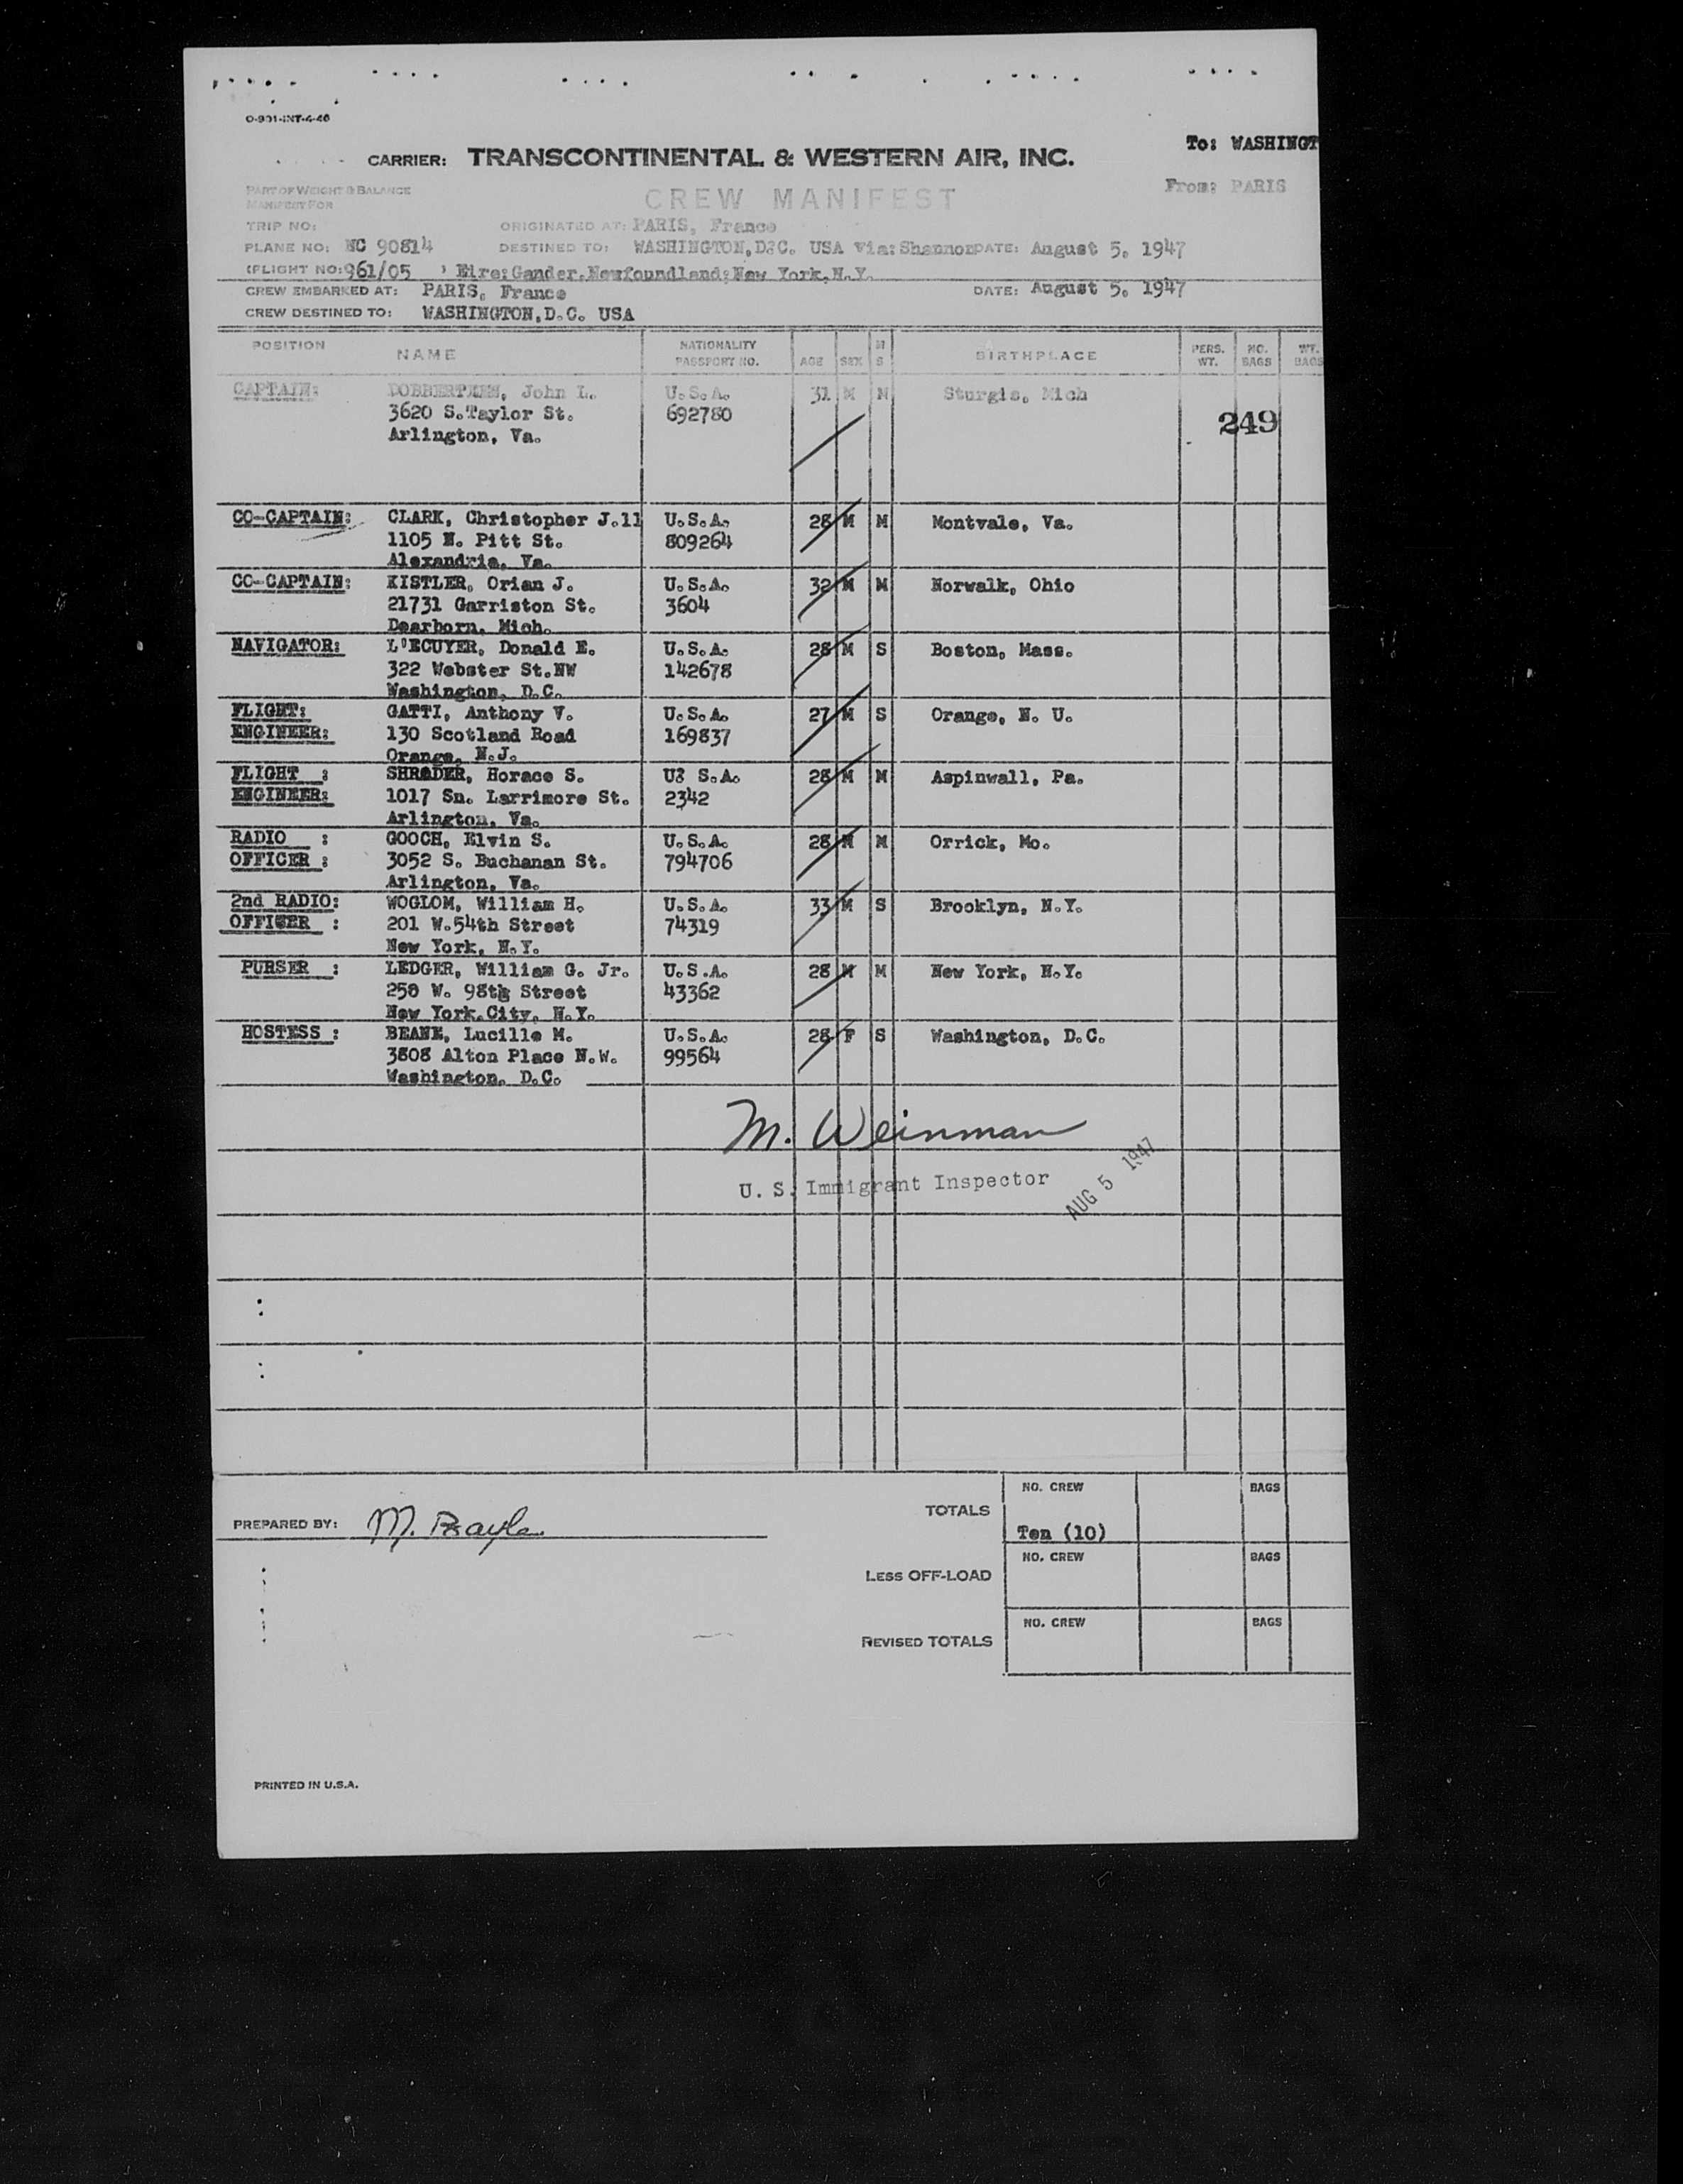 O-931-INT-4-46
To: WASHINGT
CARRIER: TRANSCONTINENTAL & WESTERN AIR, INC.
From: PARIS
PART OF WEIGHT & BALANCE
MANIFEST FOR
CREW MANIFEST
TRIP NO: ORIGINATED AT: PARIS, France
PLANE NO: NC 90814 DESTINED TO: WASHINGTON, D.C. USA Via: Shannon DATE: August 5, 1947
(FLIGHT NO: 961/05 ) Eire; Gander, Newfoundland; New York, N.Y.
CREW EMBARKED AT: PARIS, France DATE: August 5, 1947
CREW DESTINED TO: WASHINGTON, D.C. USA
POSITION NAME NATIONALITY PASSPORT NO. AGE SEX M S BIRTHPLACE PERS. WT. NO. BAGS WT. BAGS
CAPTAIN: John L. U.S.A. 31 M M Sturgis, Mich
3620 S. Taylor St. 692780 249
Arlington, Va.
CO-CAPTAIN: CLARK, Christopher J.ll U.S.A. 28 M M Montvale, Va.
1105 N. Pitt St. 809264
Alexandria, Va.
CO-CAPTAIN: KISTLER, Orian J. U.S.A. 32 M M Norwalk, Ohio
21731 Garriston St. 3604
Dearborn, Mich.
NAVIGATOR: L'ECUYER, Donald E. U.S.A. 28 M S Boston, Mass.
322 Webster St. NW 142678
Washington, D.C.
FLIGHT: GATTI, Anthony V. U.S.A. 27 M S Orange, N. U.
ENGINEER: 130 Scotland Road 169837
Orange, N.J.
FLIGHT : SHRADER, Horace S. U3 S.A. 28 M M Aspinwall, Pa.
ENGINEER: 1017 Sn. Larrimore St. 2342
Arlington, Va.
RADIO : GOOCH, Elvin S. U.S.A. 28 M M Orrick, Mo.
OFFICER : 3052 S. Buchanan St. 794706
Arlington, Va.
2nd RADIO: WOGLOM, William H. U.S.A. 33 M S Brooklyn, N.Y.
OFFICER : 201 W. 54th Street 74319
New York, N.Y.
PURSER : LEDGER, William G. Jr. U.S.A. 28 M M New York, N.Y.
258 W. 98th Street 43362
New York City, N.Y.
HOSTESS : BEANE, Lucille M. U.S.A. 28 F S Washington, D.C.
3808 Alton Place N.W. 99564
Washington, D.C.
M. Weinman
U. S. Immigrant Inspector AUG 5 1947
NO. CREW BAGS
TOTALS
PREPARED BY: M.
Ten (10)
NO. CREW BAGS
LESS OFF-LOAD
NO. CREW BAGS
REVISED TOTALS
PRINTED IN U.S.A.